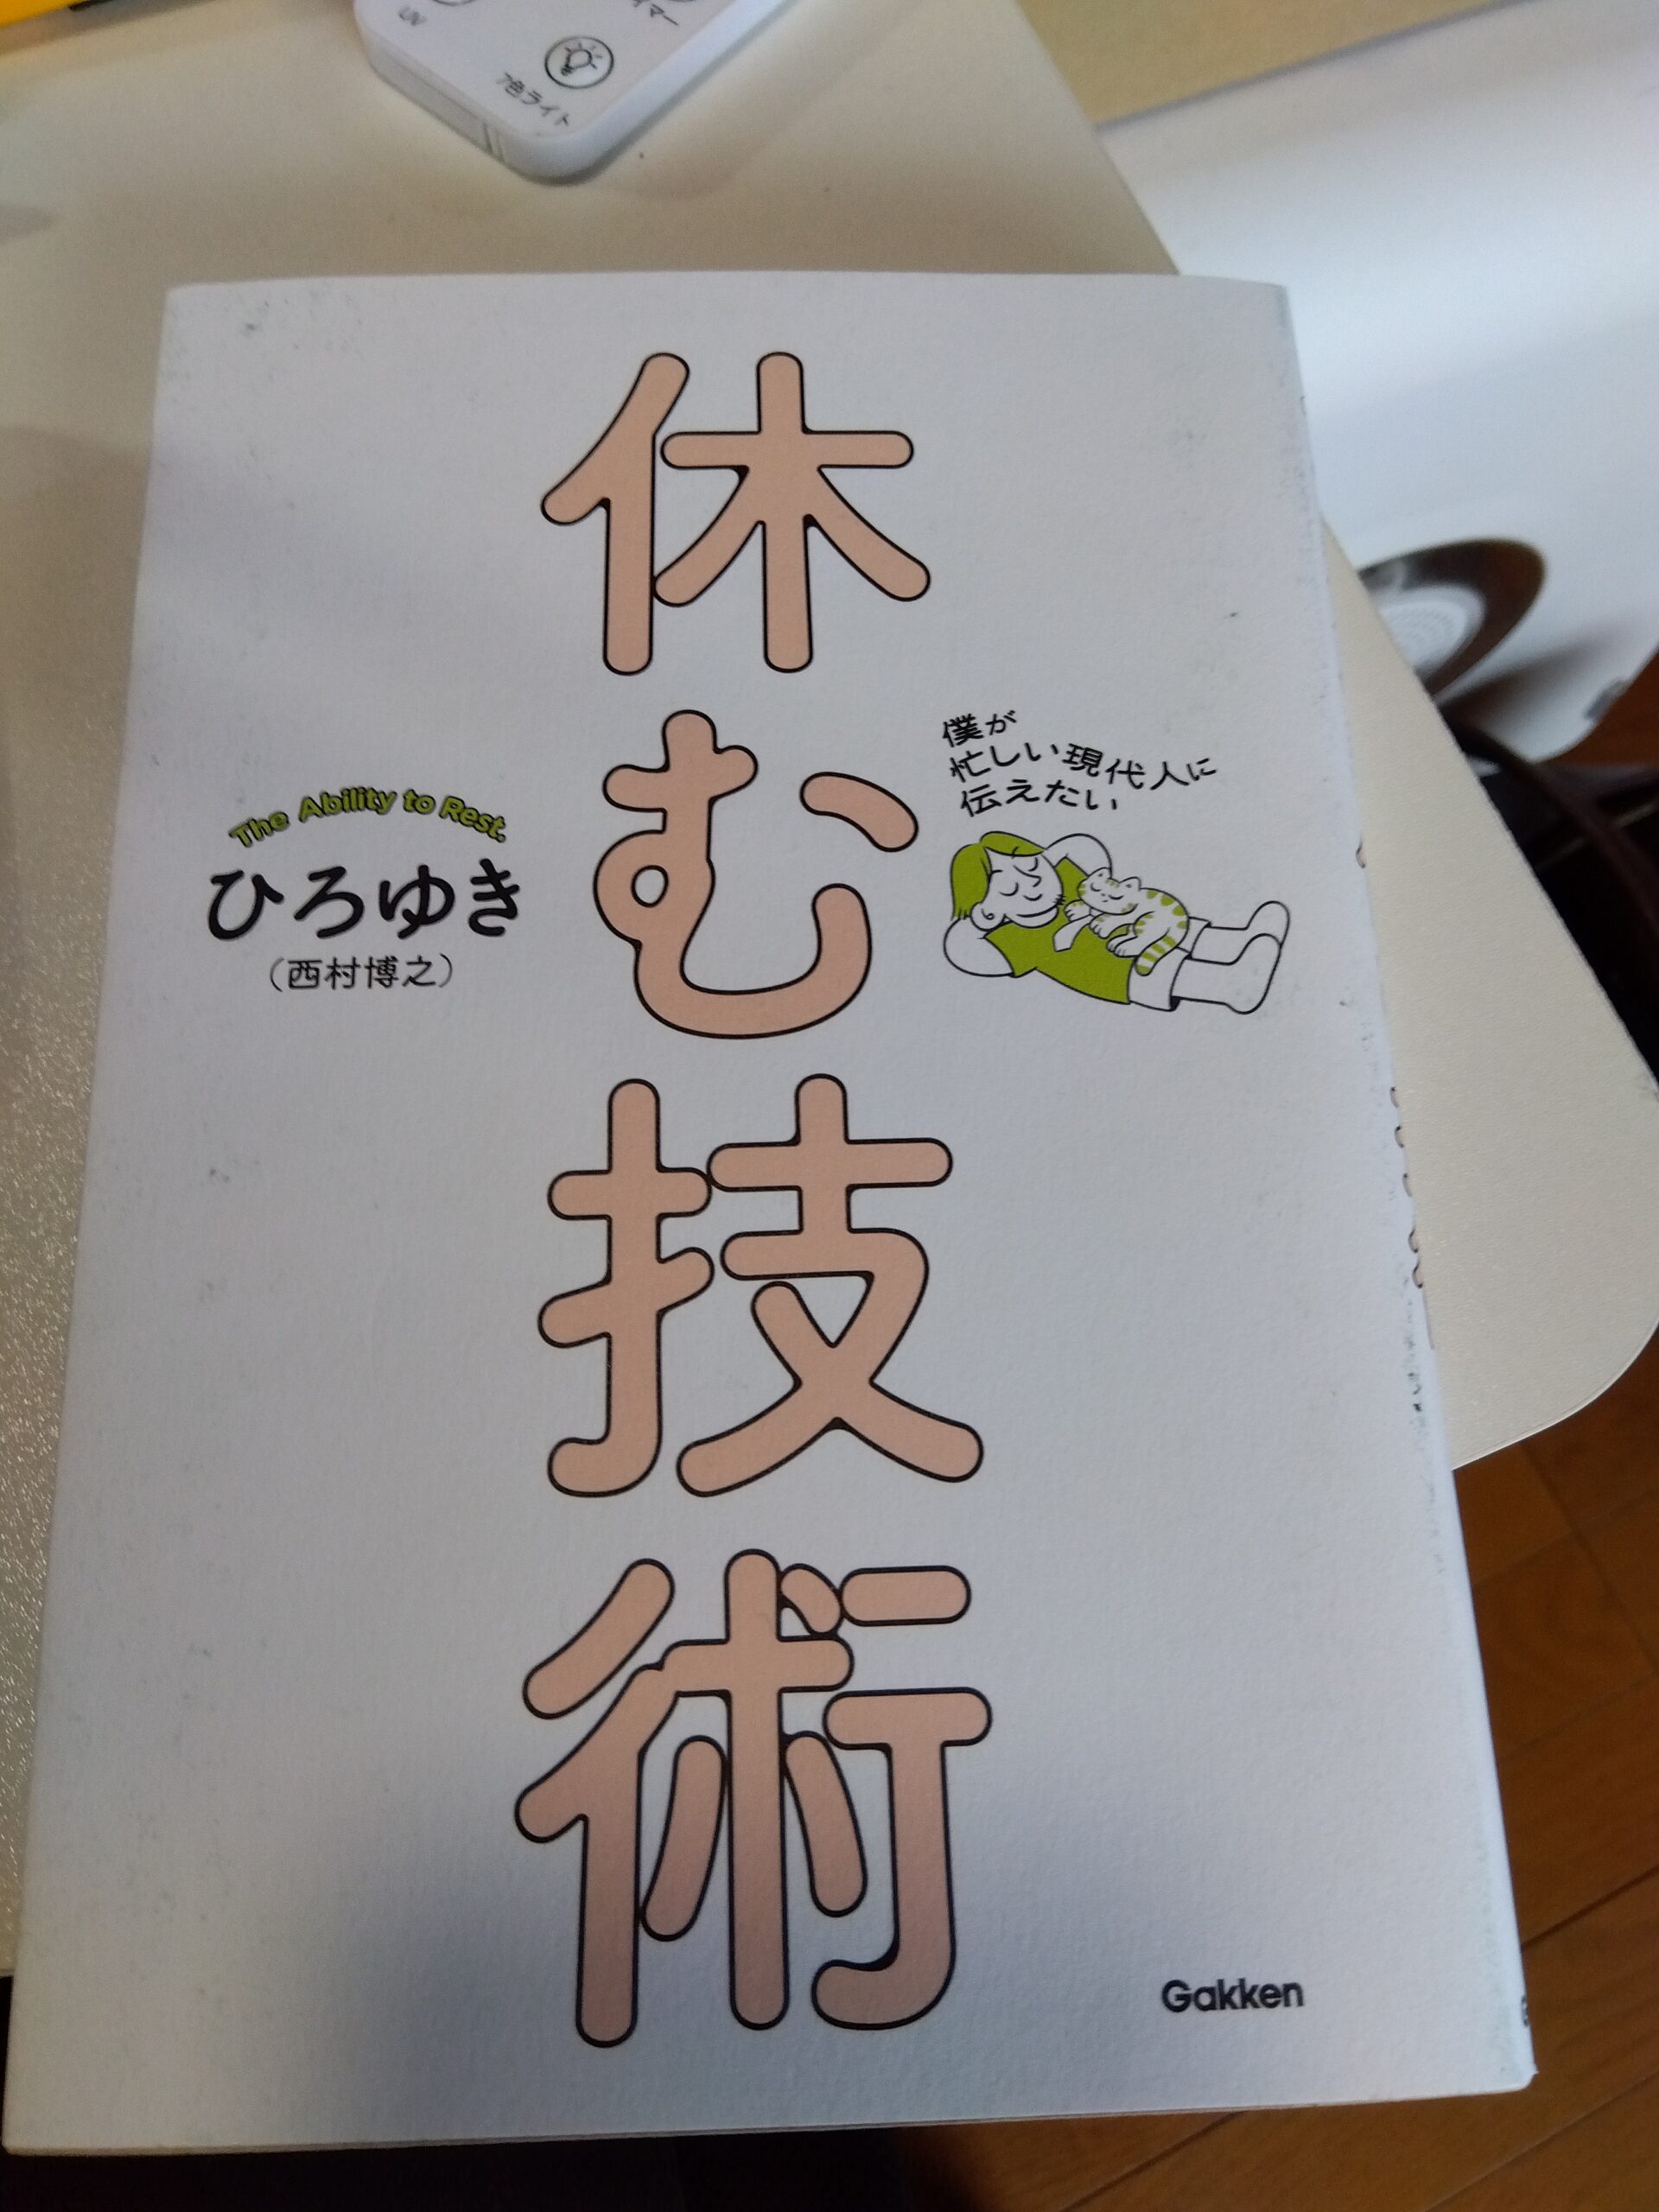 UV
イマー
7色ライト
休む技術
僕が
忙しい現代人に
伝えたい
The Ability to Rest.
ひろゆき
(西村博之)
Gakken